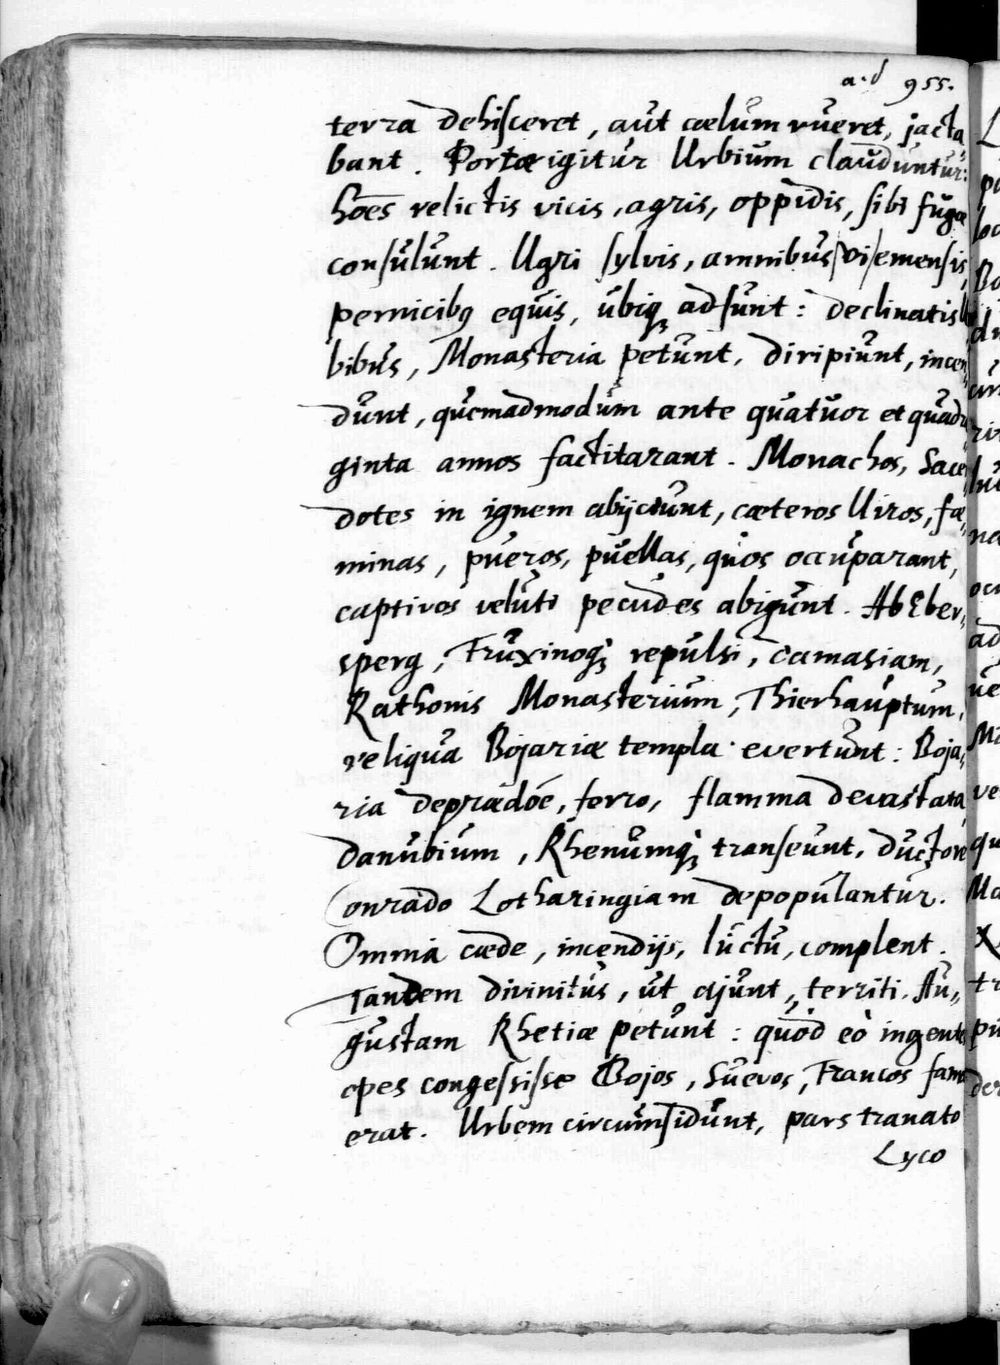 a.d 955.
terra dehisceret, aut cœlum rueret, jacta
bant. Portæ igitur Urbium clauduntur:
hōes relictis vicis, agris, oppidis, sibi fugæ
consulunt. Ugri sylvis, amnibus emensis,
pernicibꝰ equis, ubiqꝫ adsunt: declinatis
bibus, Monasteria petunt, diripiunt, incen
dunt, quemadmodum ante quatuor et quadra
ginta annos factitarant. Monachos, Sacer
dotes in ignem abijciunt, cæteros Viros, fæ„
minas, pueros, puellas, quos occuparant,
captivos veluti pecudes abigunt. Ab Eber„
sperg, Fruxinoqꝫ repulsi, Camasiam,
Rathonis Monasterium, Thierhauptum,
reliqua Bojariæ templa evertunt: Boja„
ria deprædōe, ferro, flamma devastata,
Danubium, Rhenumqꝫ transeunt, ductore
Conrado Lotharingiam depopulantur.
Omnia cæde, incendijs, luctu, complent.
Tandem divinitus, ut ajunt, territi. Au„
gustam Rhetiæ petunt: quòd eò ingentes
opes congessisse Bojos, Suevos, Francos fama
erat. Urbem circumsidunt, pars tranato
Lyco